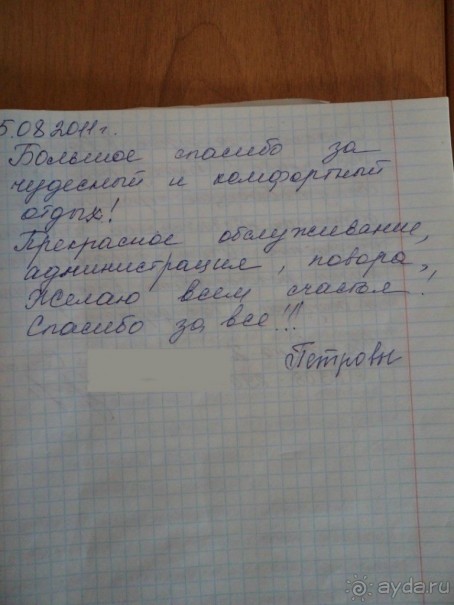 5.08.2011г.
Большое спасибо за
чудесный и комфортный
отдых!
Прекрасное обслуживание,
администрация, повора,
Желаю всем счастья!
Спасибо за все!!!
Петровы
ayda.ru